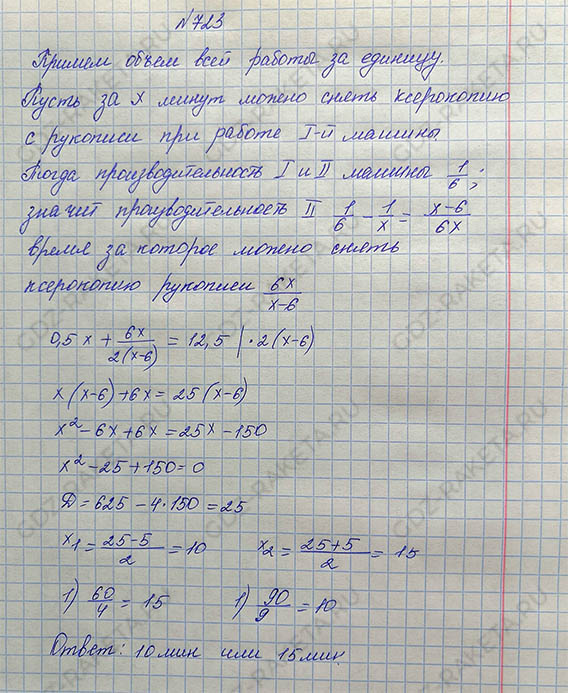 №723
Примем объем всей работы за единицу.
Пусть за x минут можно снять ксерокопию
с рукописи при работе I-й машины.
Тогда производительность I и II машины 1/6;
значит производительность II 1/6 - 1/x = x-6/6x
время за которое можно снять
ксерокопию рукописи 6x/x-6
0,5x + 6x/2(x-6) = 12,5 | · 2(x-6)
x(x-6)+6x = 25(x-6)
x² - 6x + 6x = 25x - 150
x² - 25 + 150 = 0
Д = 625 - 4·150 = 25
x₁ = 25-5/2 = 10 x₂ = 25+5/2 = 15
1) 60/4 = 15 1) 90/9 = 10
Ответ: 10 мин или 15 мин.
GDZ-RAKETA.RU